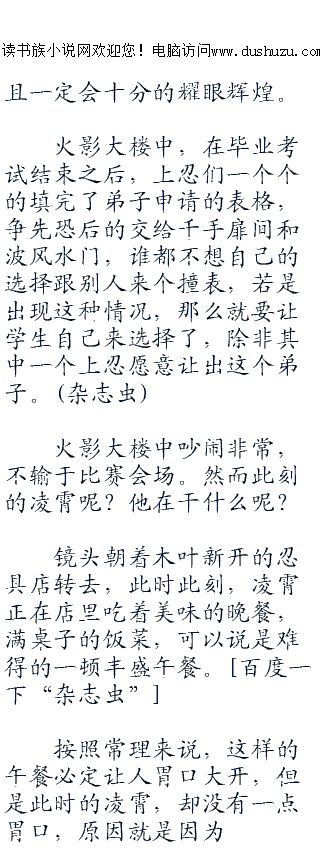 读书族小说网欢迎您！电脑访问www.dushuzu.com
且一定会十分的耀眼辉煌。
火影大楼中，在毕业考
试结束之后，上忍们一个个
的填完了弟子申请的表格，
争先恐后的交给千手扉间和
波风水门，谁都不想自己的
选择跟别人来个撞表，若是
出现这种情况，那么就要让
学生自己来选择了，除非其
中一个上忍愿意让出这个弟
子。(杂志虫)
火影大楼中吵闹非常，
不输于比赛会场。然而此刻
的凌霄呢？他在干什么呢？
镜头朝着木叶新开的忍
具店转去，此时此刻，凌霄
正在店里吃着美味的晚餐，
满桌子的饭菜，可以说是难
得的一顿丰盛午餐。[百度一
下“杂志虫”]
按照常理来说，这样的
午餐必定让人胃口大开，但
是此时的凌霄，却没有一点
胃口，原因就是因为